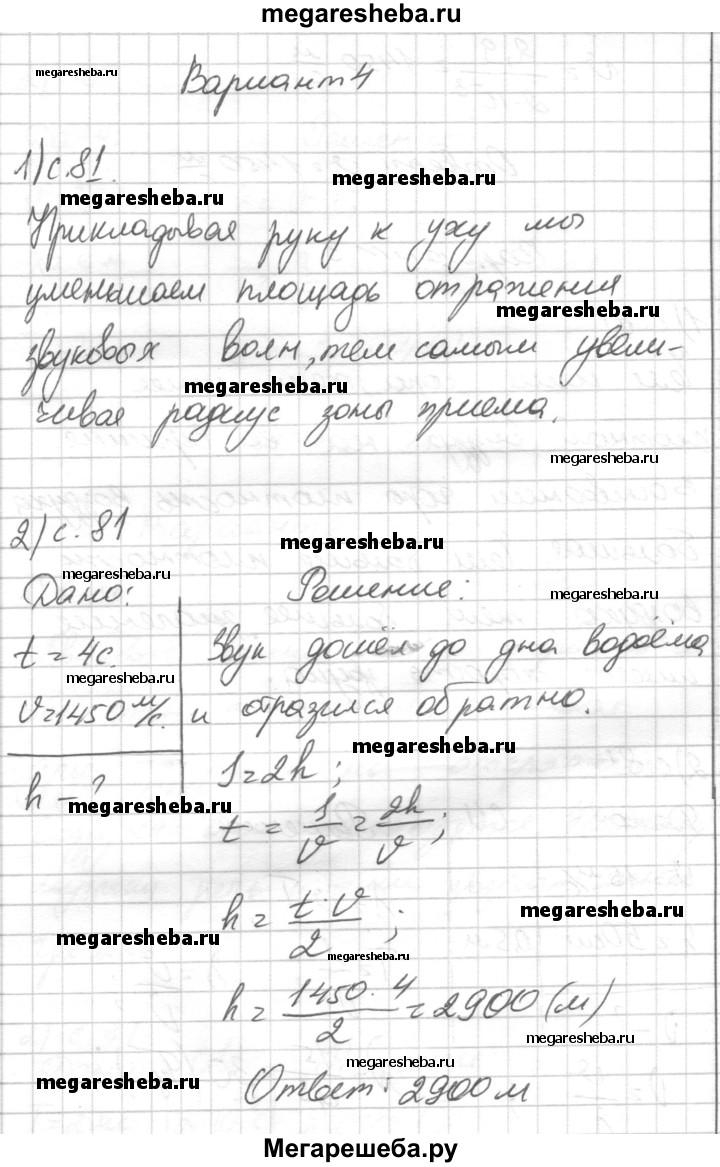 megaresheba.ru
megaresheba.ru
Вариант 4
1) с.81.
megaresheba.ru
megaresheba.ru
Прикладывая руку к уху мы
уменьшаем площадь отражения
megaresheba.ru
звуковых волн, тем самым увели-
megaresheba.ru
чивая радиус зоны приема.
megaresheba.ru
2) с. 81
megaresheba.ru
megaresheba.ru
Дано: Решение:
megaresheba.ru
t = 4c. Звук дошёл до дна водоёма
megaresheba.ru
v=1450 м/с. и отразился обратно.
megaresheba.ru
h - ? l=2h;
megaresheba.ru
t = l/v = 2h/v;
h = t·v/2;
megaresheba.ru
megaresheba.ru
megaresheba.ru
h = 1450·4/2 = 2900 (м)
megaresheba.ru
megaresheba.ru
megaresheba.ru
Ответ: 2900 м
Мегарешеба.ру